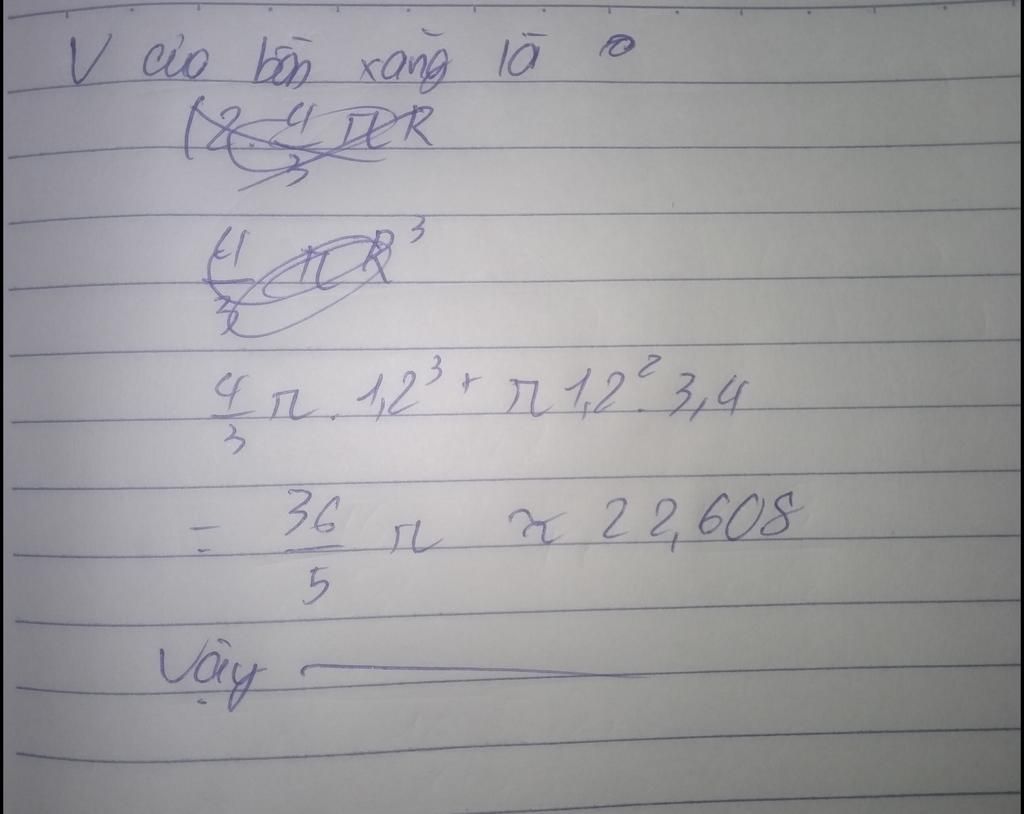 V của bồn xăng là
12. 4/3 πR
4/3 πR³
4/3 π. 1,2³ + π 1,2². 3,4
= 36/5 π ≈ 22,608
Vậy